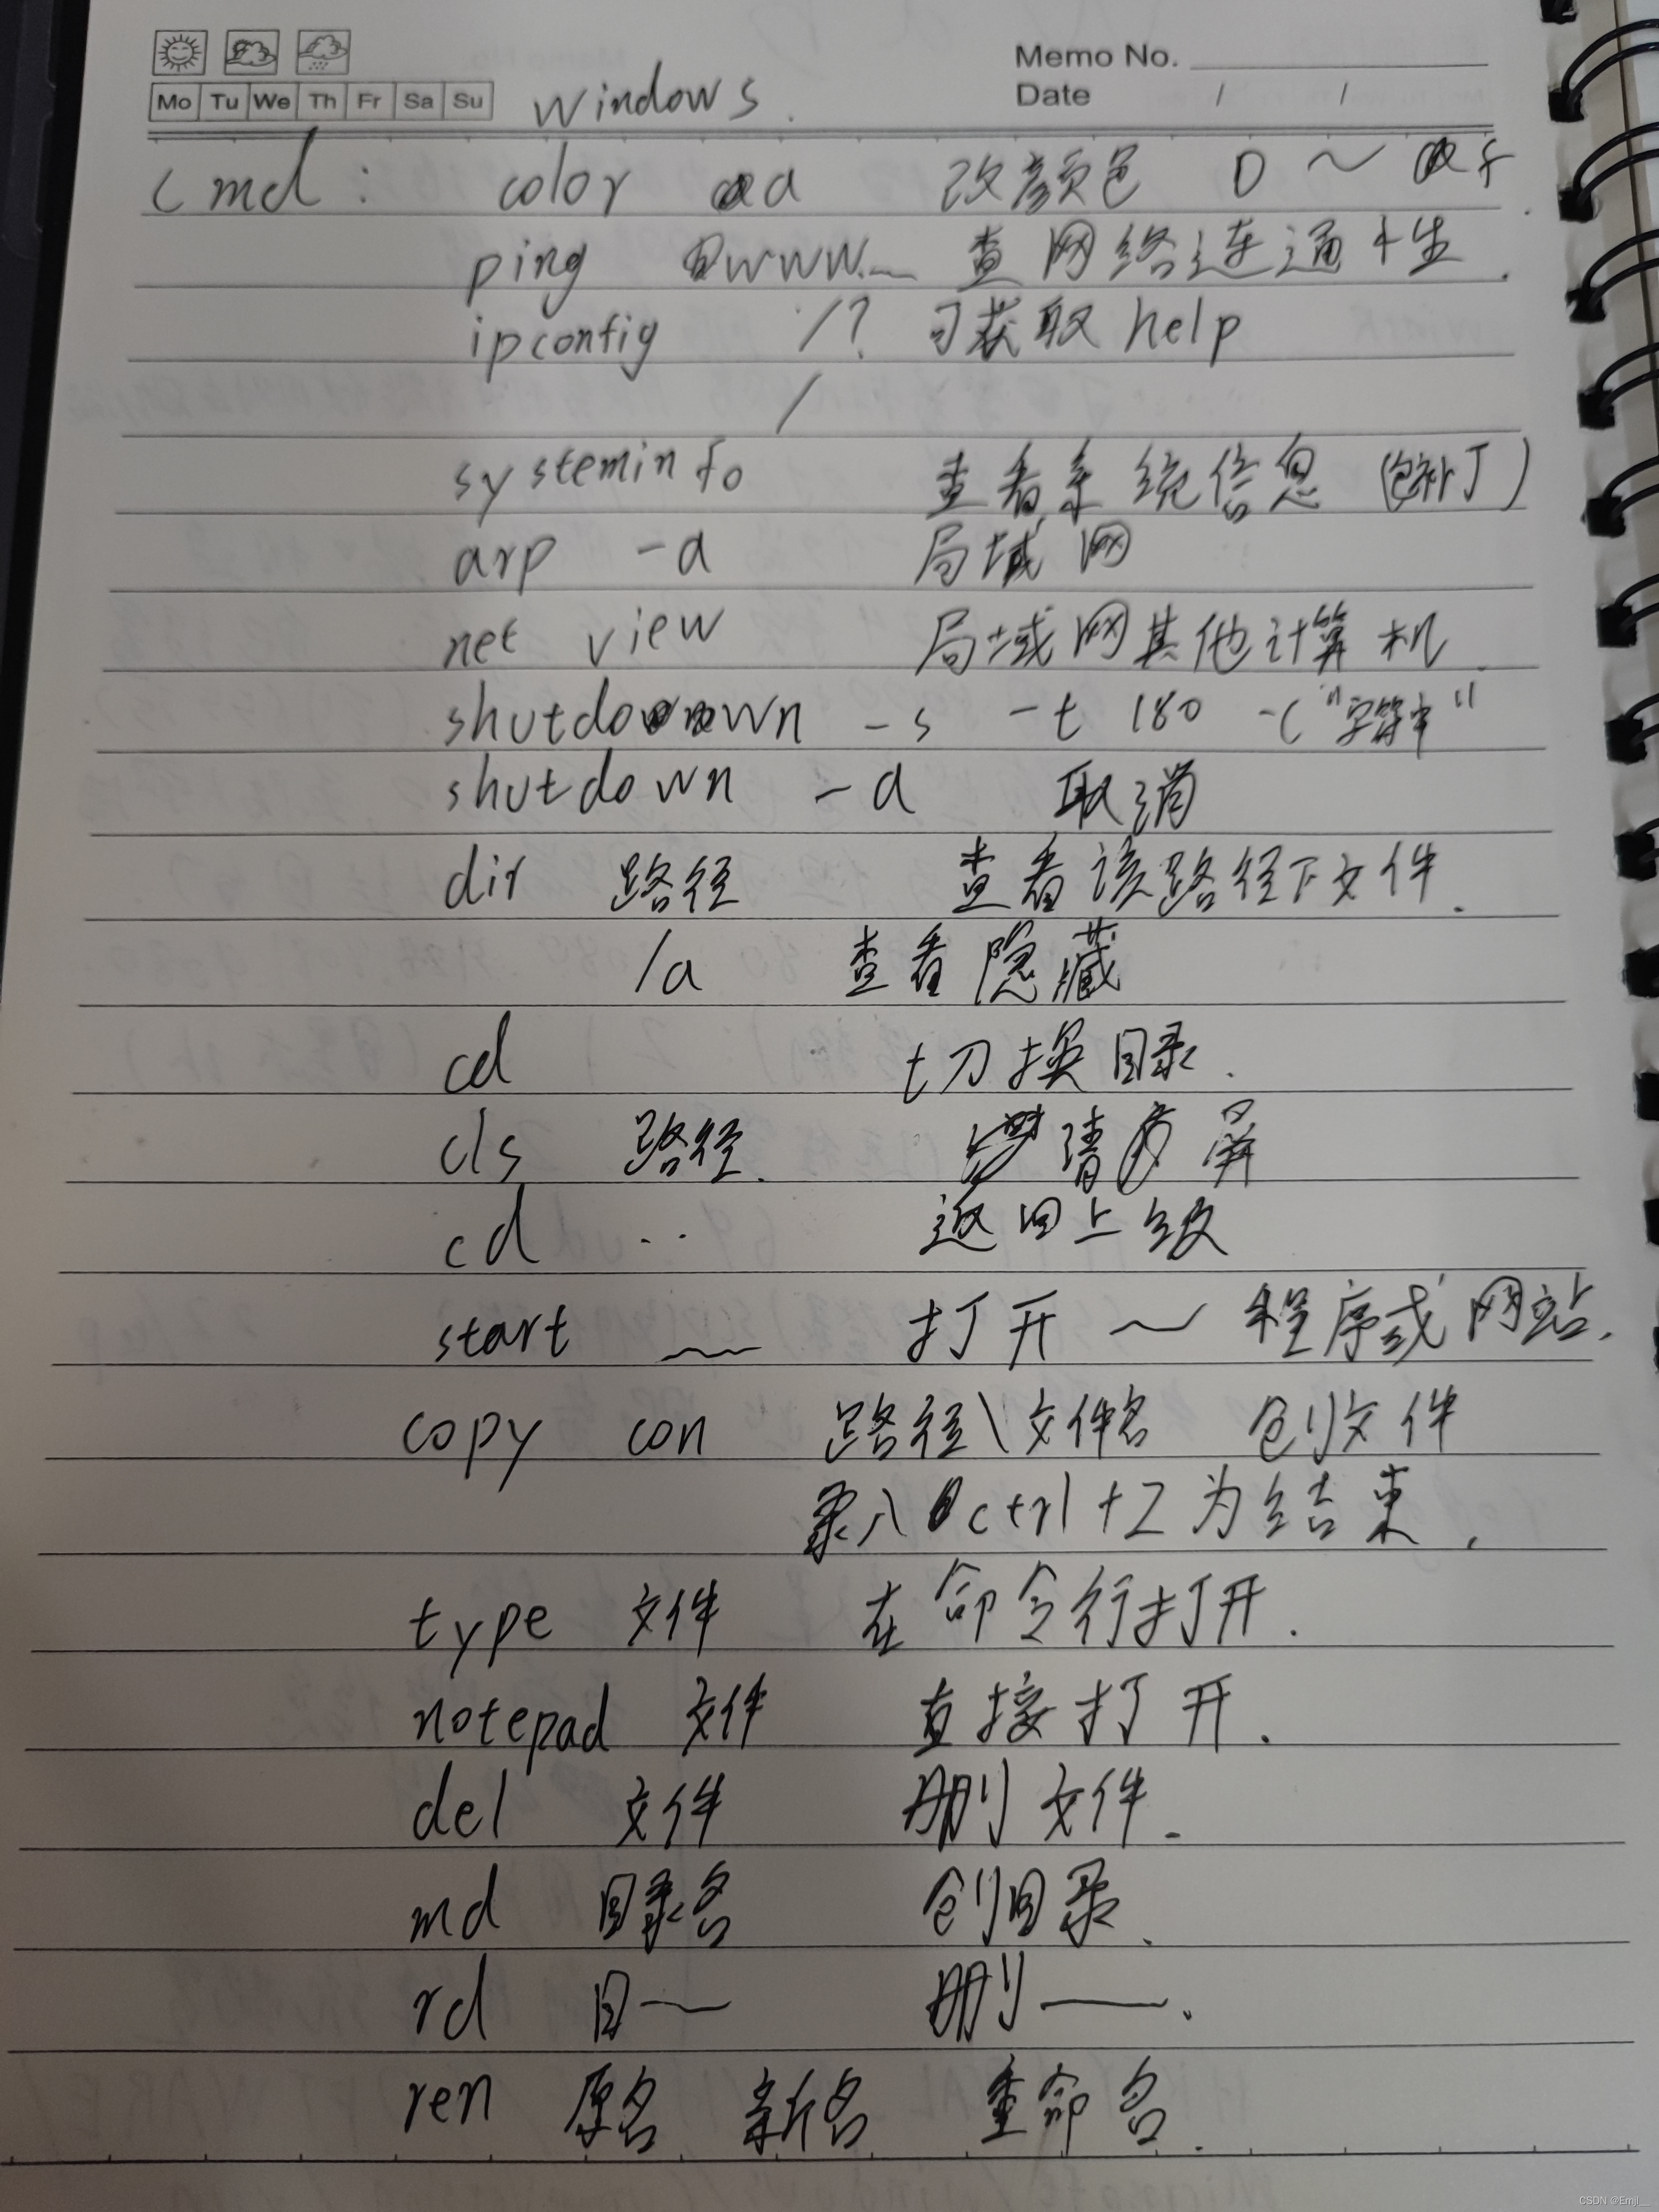 Memo No.
Mo Tu We Th Fr Sa Su windows. Date / /
cmd: color a 改颜色 0 ~ f.
ping www.— 查网络连通性.
ipconfig /? 可获取help
/
systeminfo 查看系统信息(包补丁)
arp -a 局域网
net view 局域网其他计算机.
shutdown -s -t 180 -c "字符串"
shutdown -a 取消
dir 路径 查看该路径下文件.
/a 查看隐藏
cd 切换目录.
cls 路径. 清屏
cd .. 返回上级
start ~~ 打开~程序或网站.
copy con 路径\文件名 创文件
录入 ctrl+Z为结束.
type 文件 在命令行打开.
notepad 文件 直接打开.
del 文件 删文件.
md 目录名 创目录.
rd 目— 删—.
ren 原名 新名 重命名.
CSDN @Emjl__